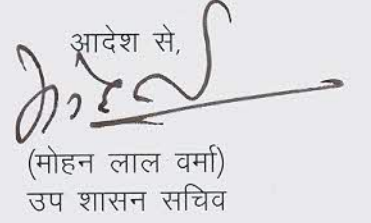 आदेश से,
(मोहन लाल वर्मा)
उप शासन सचिव